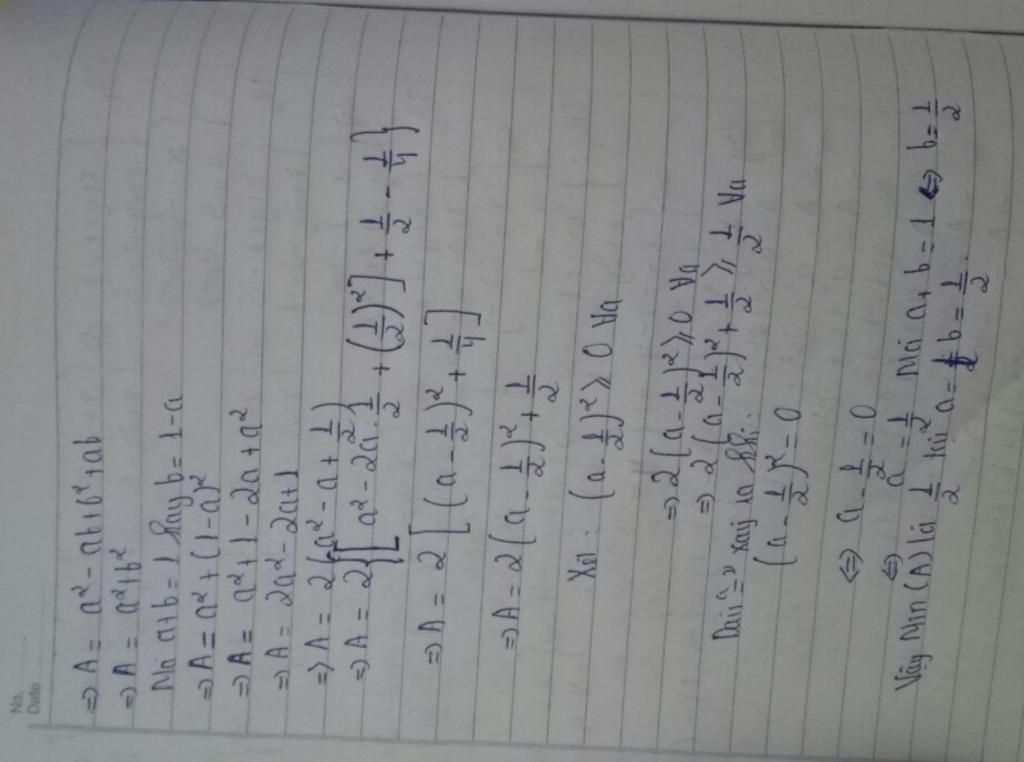 No.
Date
=> A = a² - ab + b² + ab
=> A = a² + b²
Mà a+b = 1 hay b = 1-a
=> A = a² + (1-a)²
=> A = a² + 1 - 2a + a²
=> A = 2a² - 2a + 1
=> A = 2(a² - a + 1/2)
=> A = 2{[a² - 2a.1/2 + (1/2)²] + 1/2 - 1/4}
=> A = 2[(a - 1/2)² + 1/4]
=> A = 2(a - 1/2)² + 1/2
Xét: (a - 1/2)² ≥ 0 ∀a
=> 2(a - 1/2)² ≥ 0 ∀a
=> 2(a - 1/2)² + 1/2 ≥ 1/2 ∀a
Dấu "=" xảy ra khi:
(a - 1/2)² = 0
<=> a - 1/2 = 0
<=> a = 1/2 Mà a + b = 1 <=> b = 1/2
Vậy Min(A) là 1/2 tại a = b = 1/2.